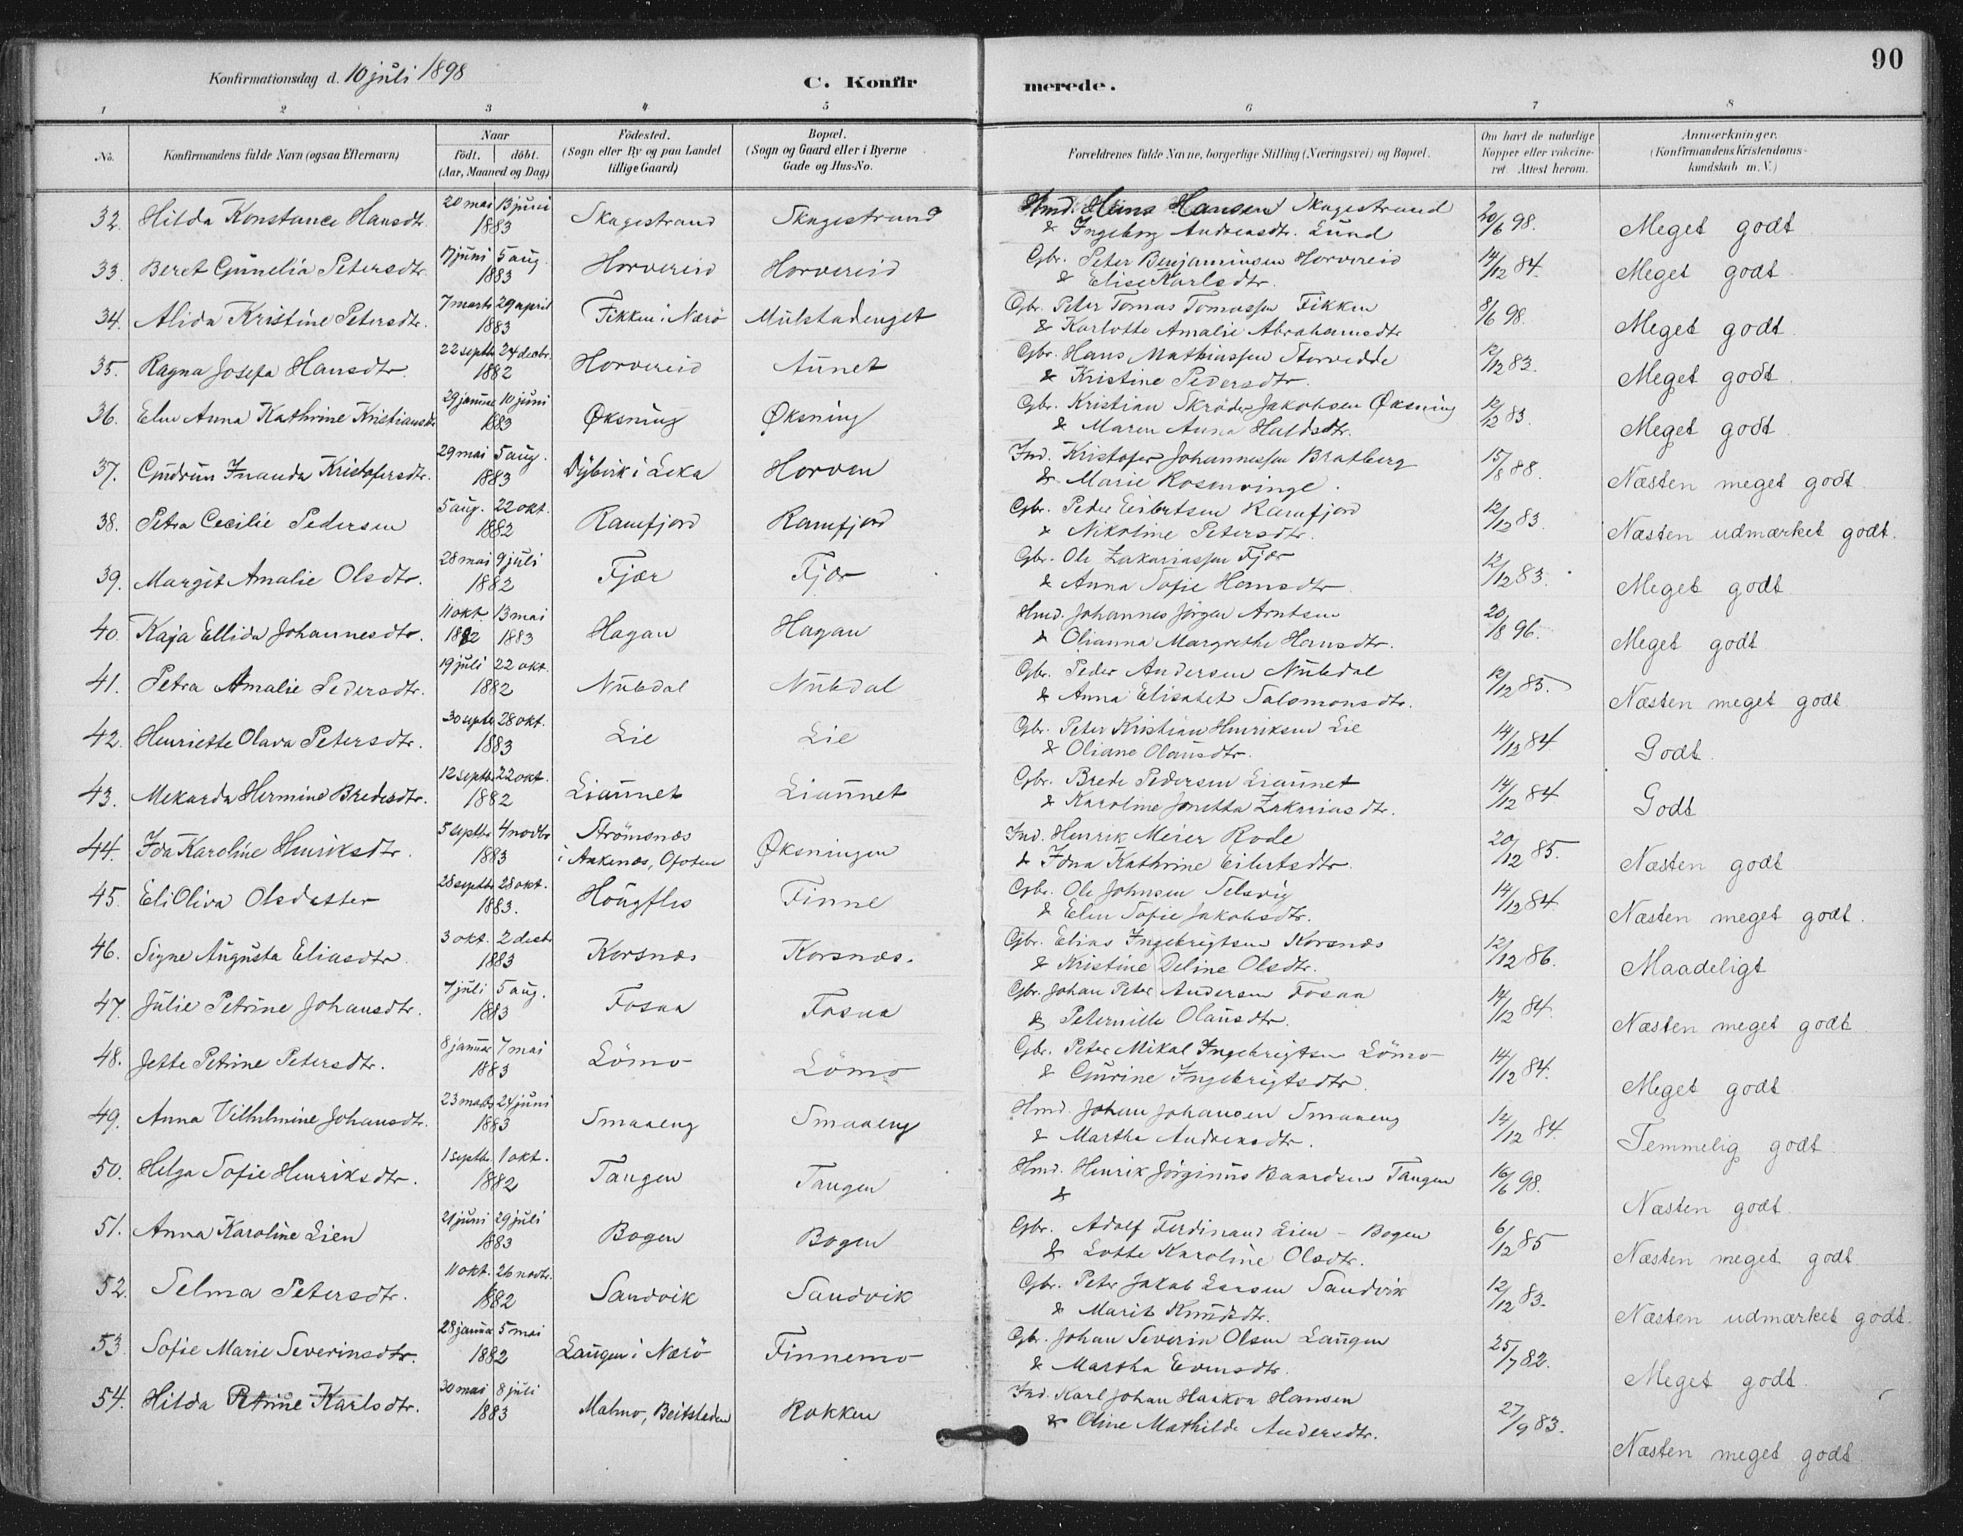 90
Konfirmationsdag d. 10 juli 1898
C. Konfirmerede.
1 2 3 4 5 6 7 8
No. Konfirmandens fulde Navn (ogsaa Efternavn)
Naar födt. döbt. (Aar, Maaned og Dag)
Födested. (Sogn eller By og paa Landet tillige Gaard)
Bopæl. (Sogn og Gaard eller i Byerne Gade og Hus-No.
Forældrenes fulde Navne, borgerlige Stilling (Næringsvei) og Bopæl.
Om havt de naturlige Kopper eller vakcineret. Attest herom.
Anmærkninger. (Konfirmandens Kristendomskundskab m. V.)
32. Hilda Konstance Hansdtr. 20 mai 13 juni 1883 Skagestrand Skagestrand Hmd. Hans Hansen Skagestrand 20/6 98. Meget godt
& Ingeborg Andreasdtr. Lund
33. Beret Gunelia Petersdtr. 17 juni 5 aug. 1883 Horvereid Horvereid Gbr. Peter Benjaminsen Horvereid 14/12 84. Meget godt
& Elise Karlsdtr.
34. Alida Kristine Petersdtr. 7 marts 29 april 1883 Fikken i Nærö Mulstadenget Gbr. Peter Tomas Tomassen Fikken 8/6 98. Meget godt
& Karlotte Amalie Abrahamsdtr
35. Ragna Josefa Hansdtr. 22 septbr 24 decbr. 1882 Horvereid Aunet Gbr. Hans Mathiassen Storvedde 12/12 83. Meget godt
& Kristine Pedersdtr.
36. Elen Anna Kathrine Kristiansdtr 29 januar 10 juni 1883 Øksning Øksning Gbr. Kristian Skröder Jakobsen Øksning 12/12 83. Meget godt
& Maren Anna Haldsdtr.
37. Gudrun Inanda Kristofersdtr. 29 mai 5 aug. 1883 Dybvik i Leka Horven Ind. Kristofer Johannessen Bratberg 15/8 88. Næsten meget godt
& Marie Rosenvinge.
38. Petra Cecilie Pedersen 5 aug. 22 okt. 1882 Ramfjord Ramfjord Gbr. Peder Eilertsen Ramfjord 12/12 83. Næsten udmærket godt.
& Nikoline Petersdtr.
39. Margit Amalie Olsdtr. 28 mai 9 juli 1882 Fjær Fjær Gbr. Ole Zakariassen Fjær 12/12 83. Meget godt
& Anna Sofie Hansdtr
40. Kaja Ellida Johannesdtr. 11 okt. 1882 13 mai 1883 Hagan Hagan Hmd. Johannes Jörgen Arntsen 20/8 96. Meget godt
& Olianna Margrethe Hansdtr.
41. Petra Amalie Pedersdtr. 19 juli 22 okt. 1882 Nubdal Nubdal Gbr. Peder Andersen Nubdal 12/12 83. Næsten meget godt
& Anna Elisabet Salomonsdtr.
42. Henriette Olava Petersdtr. 30 septbr 28 okt. 1883 Lie Lie Gbr. Peter Kristian Henriksen Lie 14/12 84 Godt
& Oliane Olausdtr.
43. Mekarda Hermine Bredesdtr. 12 septbr 22 okt. 1882 Liaunet Liaunet Gbr. Brede Pedersen Liaunet 14/12 84 Godt
& Karoline Jonetta Zakariasdtr.
44. Ida Karoline Henriksdtr. 5 septbr 4 novbr 1883 Strömsnæs i Ankenæs, Ofoten Øksningen Ind. Henrik Meier Rode 20/12 85. Næsten godt
& Edna Kathrine Eilertsdtr.
45. Eli Oliva Olsdatter 28 septbr 28 okt. 1883. Höugfles Finne Gbr. Ole Johnsen Selsvig 14/12 84. Næsten meget godt.
& Elen Sofie Jakobsdtr.
46. Signe Augusta Eliasdtr. 3 okt. 2 decbr 1883 Korsnæs Korsnæs. Gbr. Elias Ingebrigtsen Korsnæs 12/12 86. Maadeligt
& Kristine Deline Olsdtr.
47. Julie Petrine Johansdtr. 7 juli 5 aug. 1883 Fosaa Fosaa Gbr. Johan Peter Andersen Fosaa 14/12 84. Næsten meget godt
& Peternille Olausdtr.
48. Jette Petrine Petersdtr. 8 januar 7 mai 1883 Lömo Lömo Gbr. Peter Mikal Ingebrigtsen Lömo 14/12 84. Meget godt
& Gurine Ingebrigtsdtr.
49. Anna Vilhelmine Johansdtr. 23 marts 24 juni 1883 Smaaeng Smaaeng Hmd. Johan Johansen Smaaeng 14/12 84. Temmelig godt
& Martha Andreasdtr.
50. Helga Sofie Henriksdtr. 1 septbr. 1 okt. 1882 Tangen Tangen Hmd. Henrik Jörginus Baardsen Tangen 16/6 98. Næsten godt.
&
51. Anna Karoline Lien 21 juni 29 juli 1883 Bogen Bogen Gbr. Adolf Ferdinand Lien - Bogen 6/12 85 Næsten meget godt
& Lotte Karoline Olsdtr.
52. Selma Petersdtr. 11 okt. 26 novbr. 1882 Sandvik Sandvik Gbr. Peter Jakob Larsen Sandvik 12/12 83. Næsten udmærket godt.
& Marit Knudsdtr.
53. Sofie Marie Severinsdtr. 28 januar 5 mai 1882 Laugen i Nærö Finnemo Gbr. Johan Severin Olsen Laugen 25/7 82. Meget godt.
& Martha Evensdtr.
54. Hilda Petrine Karlsdtr. 30 mai 8 juli 1883 Malmo, Beitstaden Rokken Ind. Karl Johan Haakon Hansen 27/9 83. Næsten meget godt
& Oline Mathilde Andersdtr.